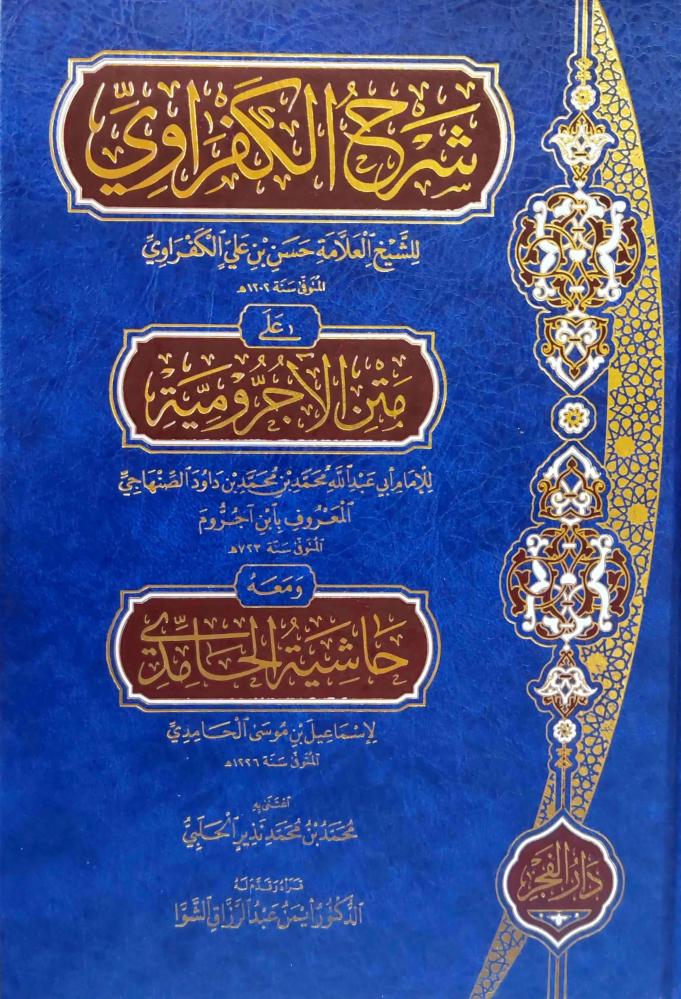 شَرْحُ الْكَفْرَاوِيِّ
لِلشَّيْخِ الْعَلَّامَةِ حَسَنِ بْنِ عَلِيٍّ الْكَفْرَاوِيِّ
المُتَوَفَّى سَنَة ١٢٠٢هـ
عَلَى
مَتْنِ الْآجُرُّومِيَّةِ
لِلْإِمَامِ أَبِي عَبْدِ اللَّهِ مُحَمَّدِ بْنِ مُحَمَّدِ بْنِ دَاوُدَ الصِّنْهَاجِيِّ
الْمَعْرُوفِ بِابْنِ آجُرُّومَ
المُتَوَفَّى سَنَة ٧٢٣هـ
وَمَعَهُ
حَاشِيَةُ الْحَامِدِيّ
لِإِسْمَاعِيلَ بْنِ مُوسَى الْحَامِدِيِّ
المُتَوَفَّى سَنَة ١٢٢٦هـ
اعْتَنَى بِهِ
مُحَمَّدُ بْنُ مُحَمَّد نَذِيرِ الْحَلَبِيُّ
قَرَأَهُ وَقَدَّمَ لَهُ
الدُّكْتُورُ أَيْمَنُ عَبْدُ الرَّزَّاقِ الشَّوَّا
دَارُ الْفَجْرِ